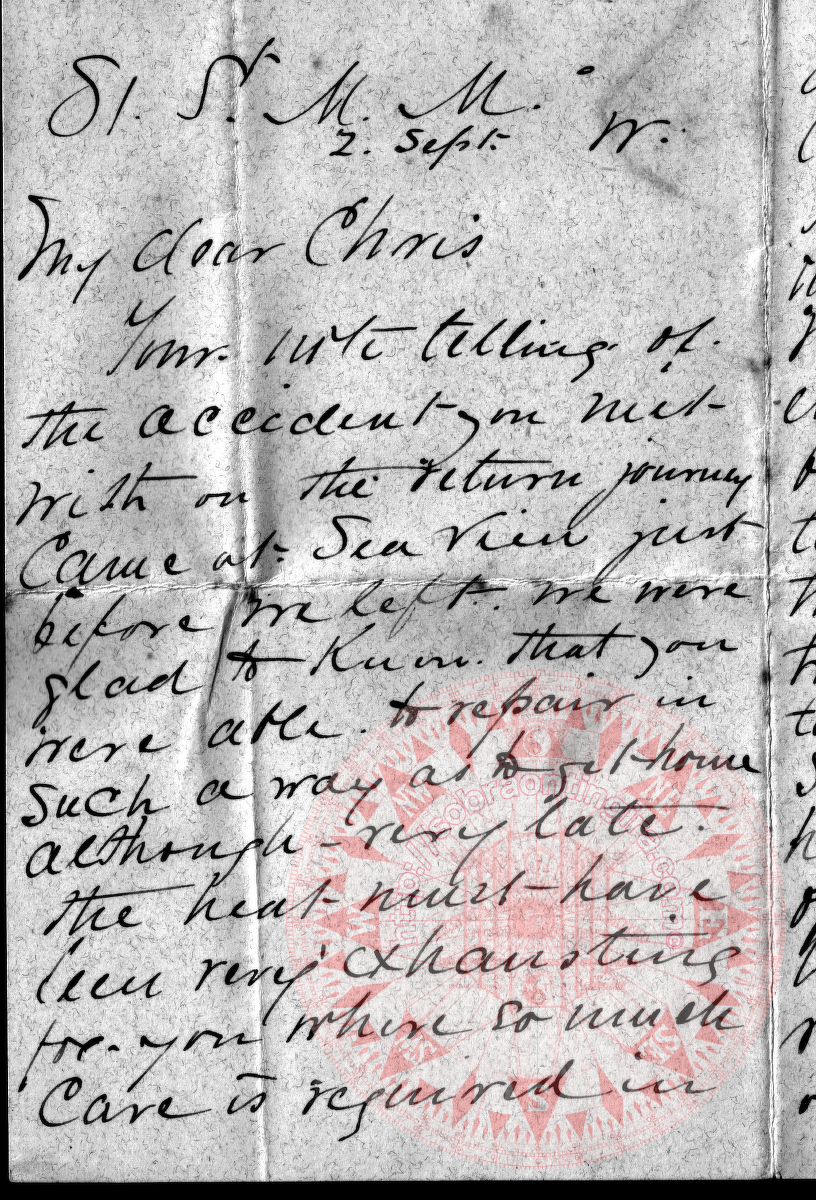 81. St. M. M. W.
2. Sept.
My dear Chris
Your note telling of
the accident you met
with on the return journey
Came at Sea View just
before we left. we were
glad to know that you
were able to repair in
such a way as to get home
although very late.
the heat must have
been very exhausting
for you where so much
Care is required in